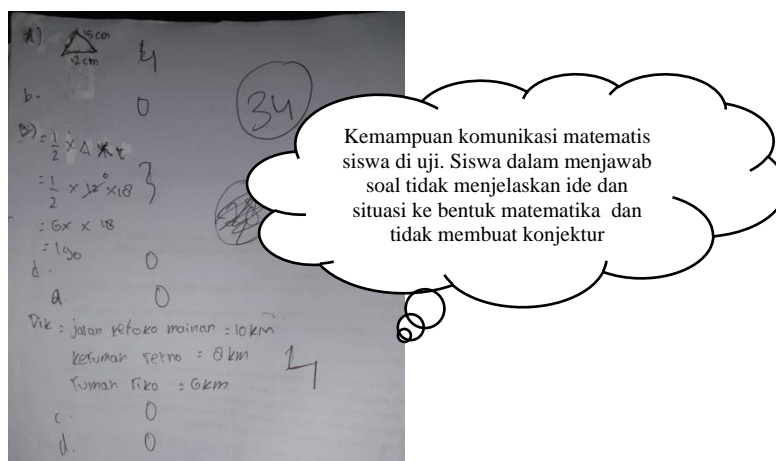 A)
15 cm
12 cm
4
b.
0
34
B.) = 1/2 x A x t
= 1/2 x 12 x 18
3
= 6x x 18
= 190
d.
0
a.
0
Dik = jalan ketoko mainan = 10 km
kerumah retno = 8 km
4
rumah riko = 6km
c.
0
d.
0
Kemampuan komunikasi matematis
siswa di uji. Siswa dalam menjawab
soal tidak menjelaskan ide dan
situasi ke bentuk matematika dan
tidak membuat konjektur